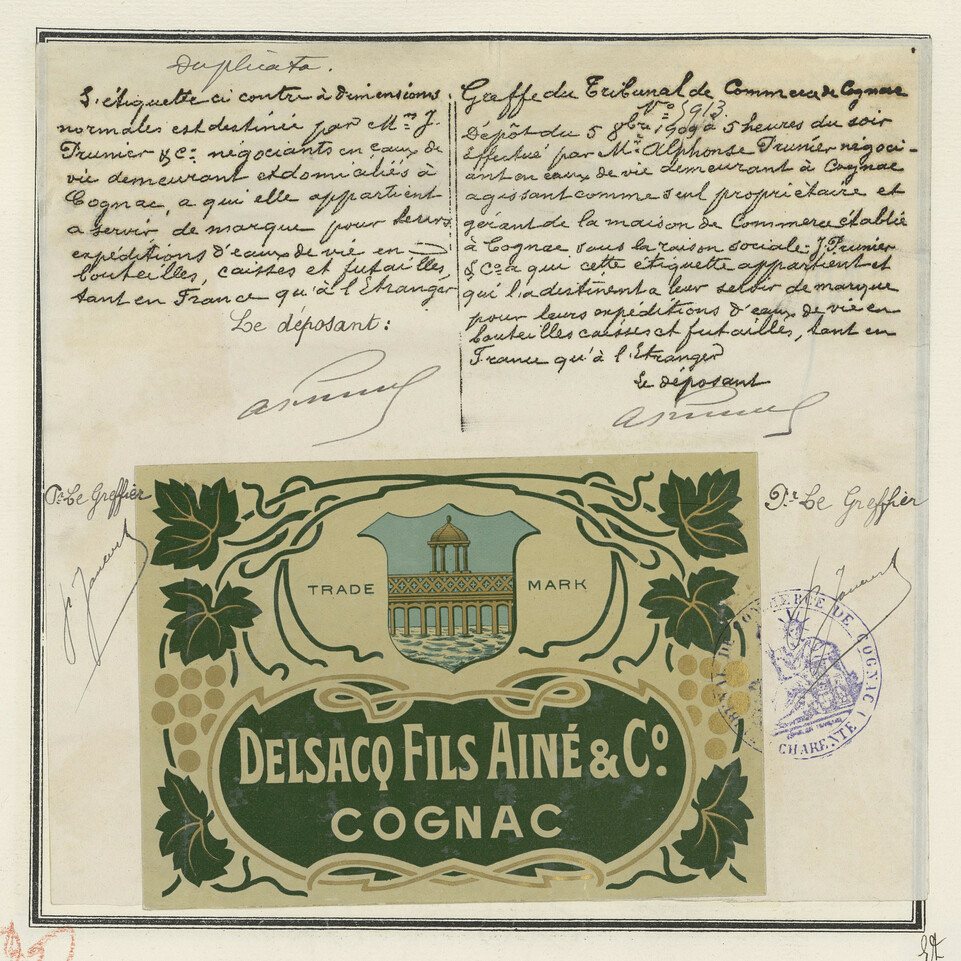 Duplicata.
L'étiquette ci contre à dimensions
normales est destinée par Mrs J.
Prunier & Co négociants en eaux de
vie demeurant et domiciliés à
Cognac, a qui elle appartient
a servir de marque pour leurs
expéditions d'eaux de vie en
bouteilles, caisses et futailles,
tant en France qu'à l'Etranger
Le déposant:
APrunier
Greffe du Tribunal de Commerce de Cognac
No 5913.
Dépôt du 5 8bre 1909 à 5 heures du soir
éffectué par Mr Alphonse Prunier négoci-
ant en eaux de vie demeurant à Cognac
agissant comme seul propriétaire et
gérant de la maison de Commerce établie
à Cognac sous la raison sociale: J. Prunier
& Co a qui cette étiquette appartient et
qui l'a destinent a leur servir de marque
pour leurs expéditions d'eaux de vie en
bouteilles caisses et futailles, tant en
France qu'à l'Etranger
Le déposant
APrunier
Pr Le Greffier
Pr Le Greffier
TRADE MARK
DELSACQ FILS AINÉ & Co.
COGNAC
COMMERCE DE COGNAC
CHARENTE